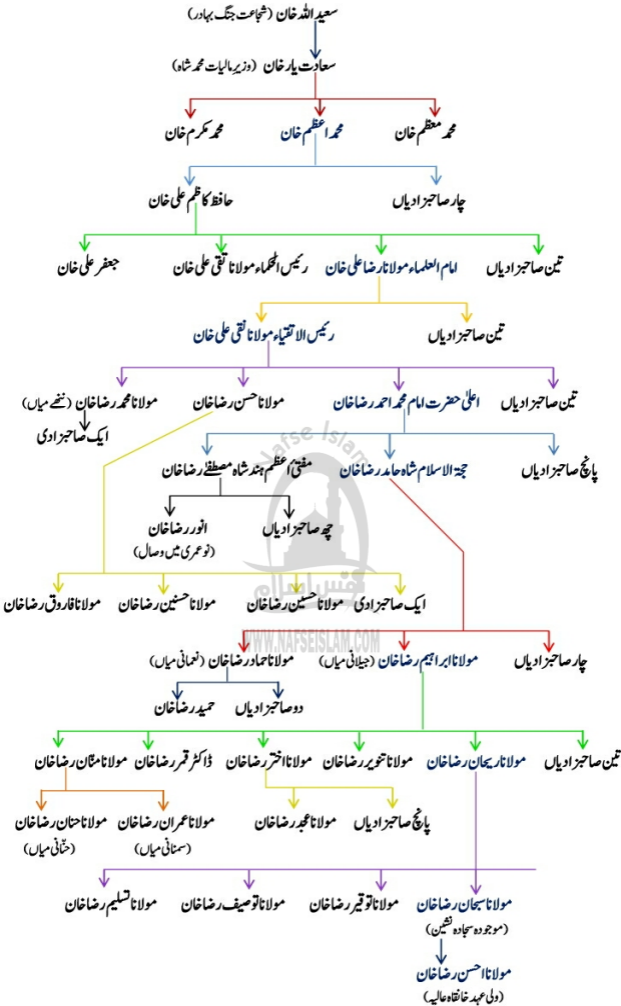 سعید اللہ خان (شجاعت جنگ بہادر)
سعادت یار خان (وزیر مالیات محمد شاہ)
محمد معظم خان محمد اعظم خان محمد مکرم خان
چار صاحبزادیاں حافظ کاظم علی خان
تین صاحبزادیاں امام العلماء مولانا رضا علی خان رئیس الحکماء مولانا تقی علی خان جعفر علی خان
تین صاحبزادیاں رئیس الاتقیاء مولانا نقی علی خان
تین صاحبزادیاں اعلیٰ حضرت امام محمد احمد رضا خان مولانا حسن رضا خان مولانا محمد رضا خان (ننھے میاں)
ایک صاحبزادی
پانچ صاحبزادیاں حجۃ الاسلام شاہ حامد رضا خان مفتیٔ اعظم ہند شاہ مصطفےٰ رضا خان
Nafse Islam
چھ صاحبزادیاں انور رضا خان
(نو عمری میں وصال)
نفس اسلام
ایک صاحبزادی مولانا حسین رضا خان مولانا حسنین رضا خان مولانا فاروق رضا خان
WWW.NAFSEISLAM.COM
چار صاحبزادیاں مولانا ابراہیم رضا خان (جیلانی میاں) مولانا حماد رضا خان (نعمانی میاں)
دو صاحبزادیاں حمید رضا خان
تین صاحبزادیاں مولانا ریحان رضا خان مولانا تنویر رضا خان مولانا اختر رضا خان ڈاکٹر قمر رضا خان مولانا منّان رضا خان
پانچ صاحبزادیاں مولانا عسجد رضا خان مولانا عمران رضا خان مولانا حنان رضا خان
(سمنانی میاں) (حنّانی میاں)
مولانا سبحان رضا خان مولانا توقیر رضا خان مولانا توصیف رضا خان مولانا تسلیم رضا خان
(موجودہ سجادہ نشین)
مولانا احسن رضا خان
(ولی عہد خانقاہ عالیہ)